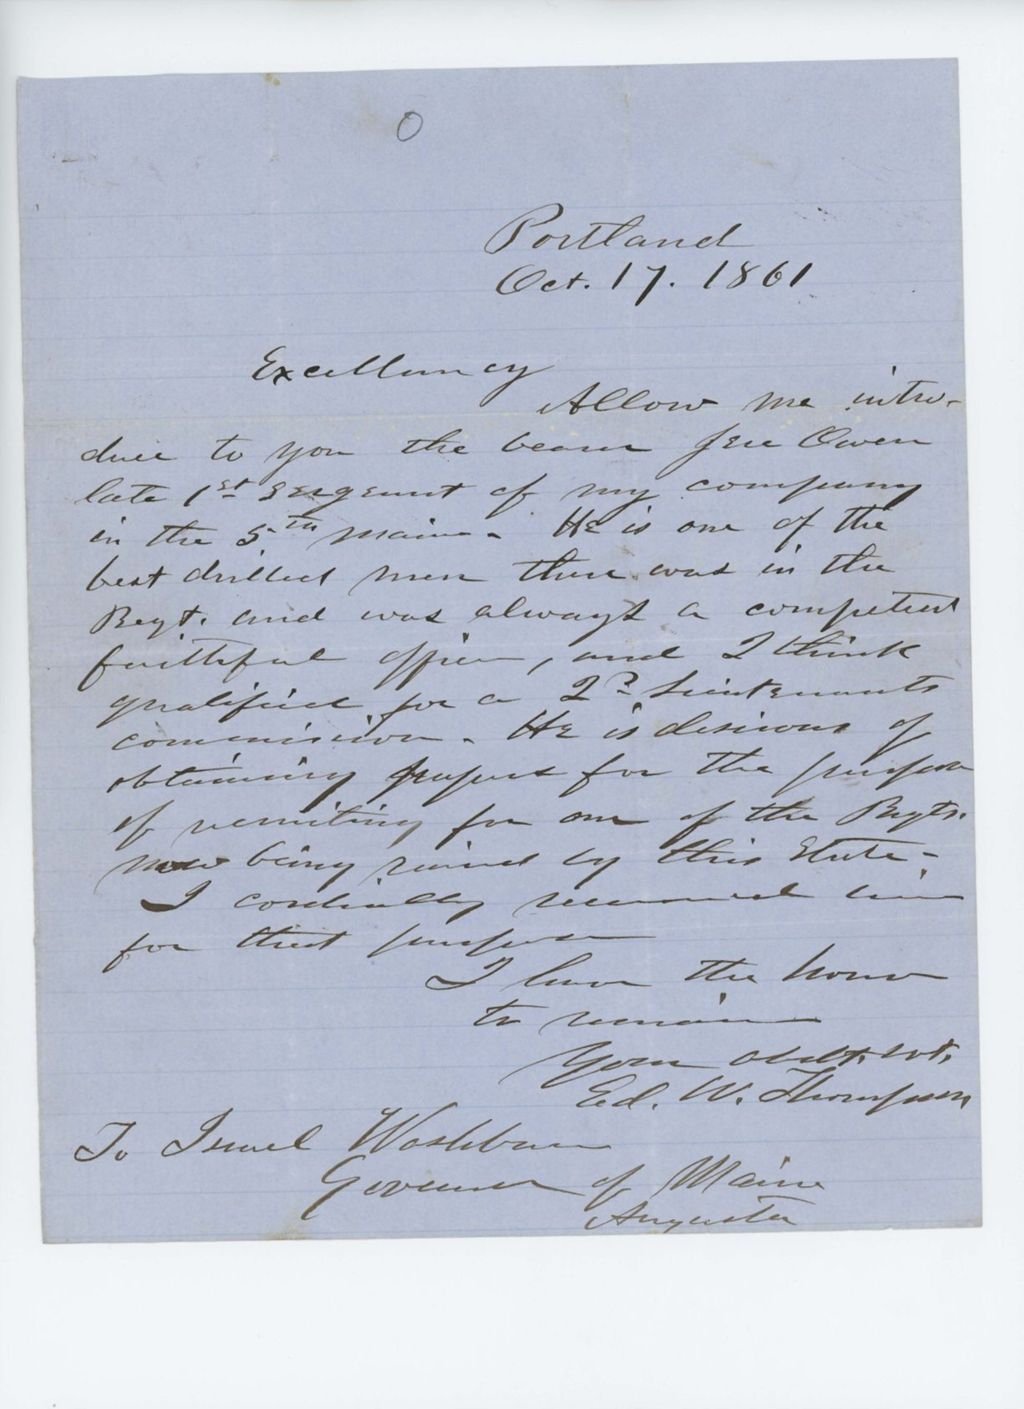 O
Portland
Oct. 17. 1861
Excellency
Allow me intro-
duce to you the bearer Jere Owen
late 1st Sergeant of my company
in the 5th Maine. He is one of the
best drilled men there was in the
Regt. and was always a competent
faithful officer, and I think
qualified for a 2d Lieutenants
commission. He is desirous of
obtaining papers for the purpose
of recruiting for one of the Regts.
now being raised by this State-
I cordially recommend him
for that purpose
I have the honor
to remain
Your obdt. svt.
Ed. W. Thompson
To Israel Washburn
Governor of Maine
Augusta